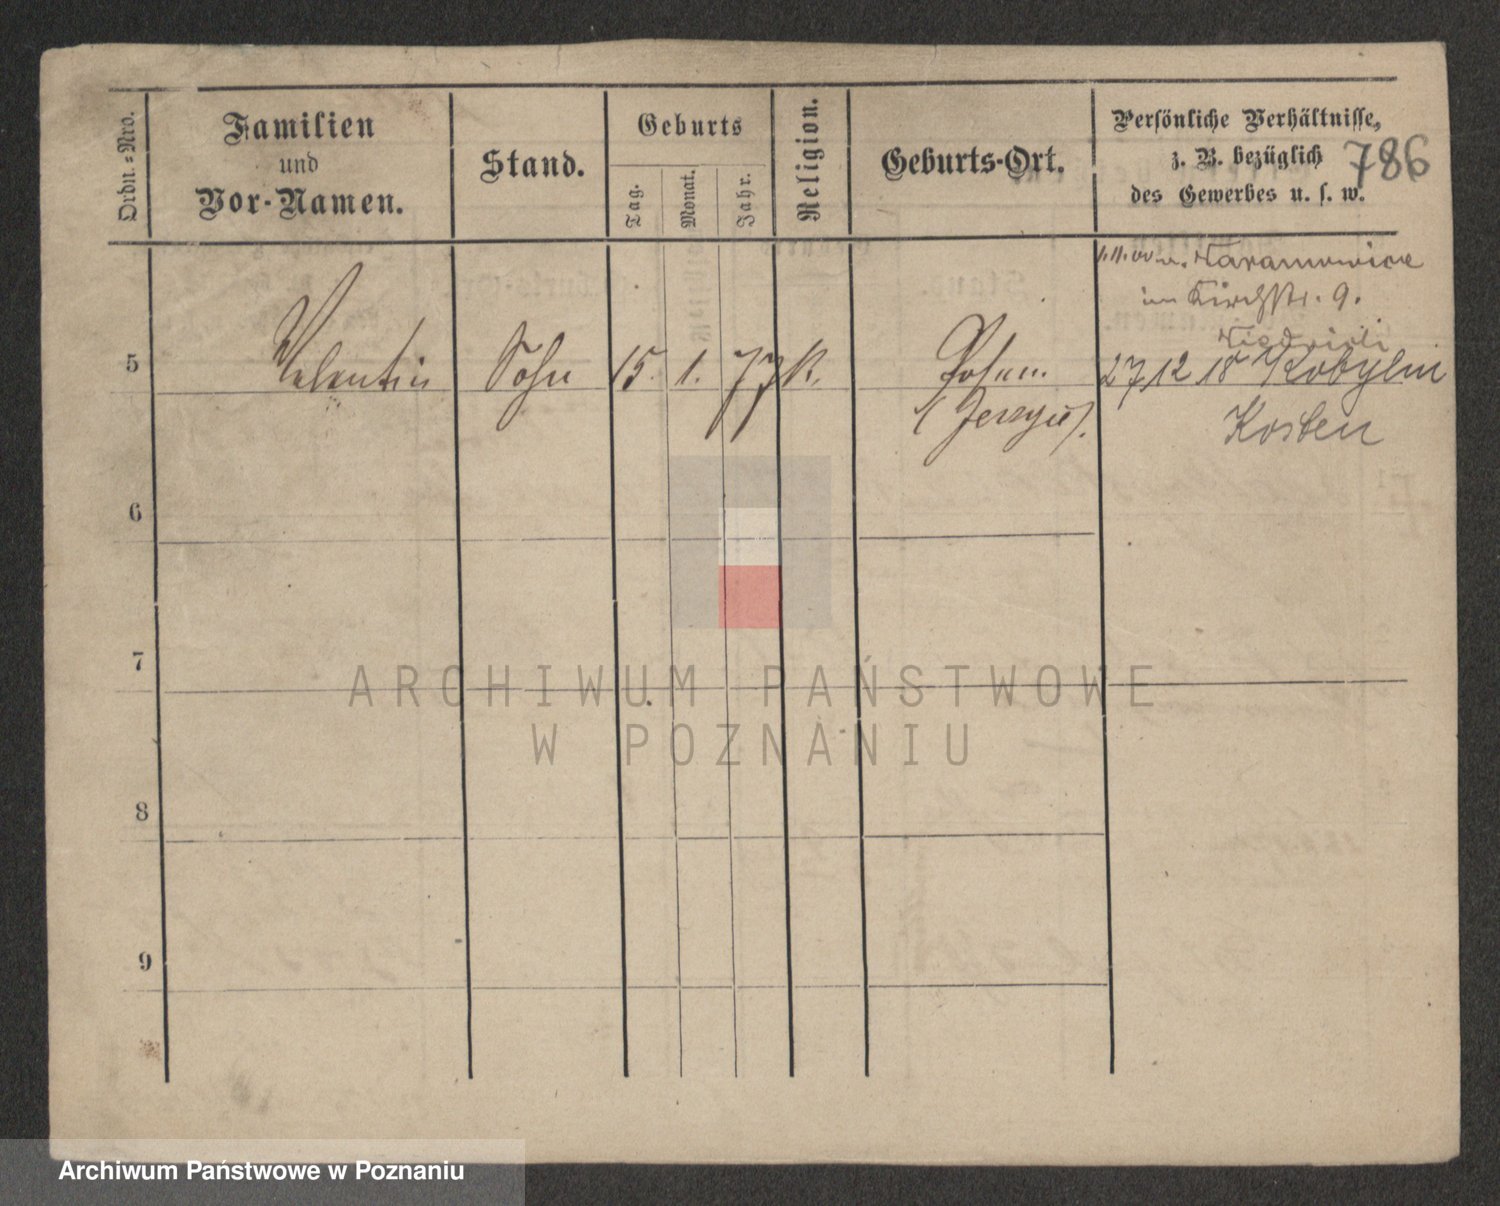 Ordn.-Nro.
Familien
und
Vor-Namen.
Stand.
Geburts
Tag.
Monat.
Jahr.
Religion.
Geburts-Ort.
Persönliche Verhältnisse,
z. B. bezüglich
des Gewerbes u. s. w.
786
Naramowice
im Kirchstr. 9.
5 Valentin Sohn 15. 1. 77 k. Posen. 27/12 18 Kobylin
(Jerzyce). Kosten
6
7
8
9
ARCHIWUM PAŃSTWOWE
W POZNANIU
Archiwum Państwowe w Poznaniu